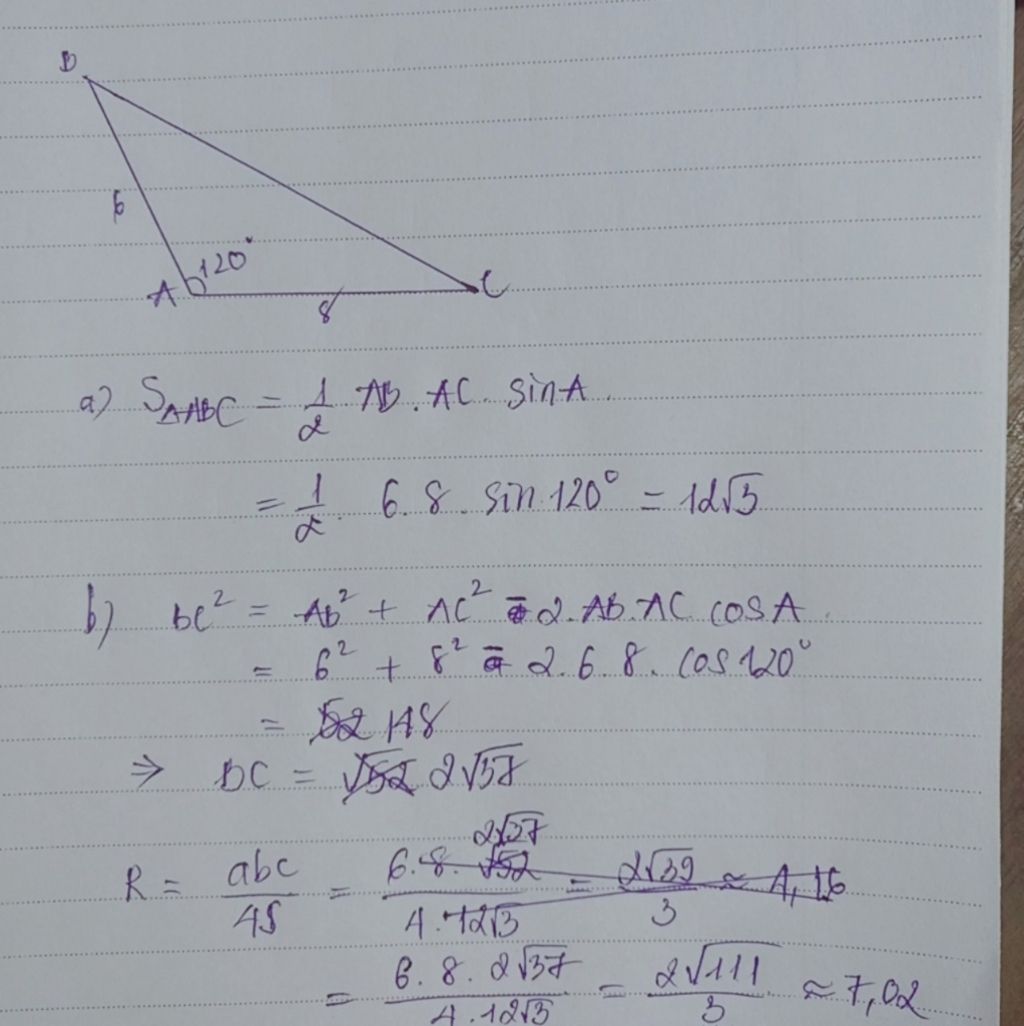 B
6
A 120°
8
C
a) S△ABC = 1/2 AB . AC . sin A .
= 1/2 . 6 . 8 . sin 120° = 12√3
b) BC² = AB² + AC² - 2.AB.AC cos A .
= 6² + 8² - 2.6.8. cos 120°
= 52 148
⇒ BC = √52 2√37
2√37
R = abc/4S = 6.8.√52/4.12√3 = 2√39/3 ≈ 4,16
= 6.8.2√37/4.12√3 = 2√111/3 ≈ 7,02